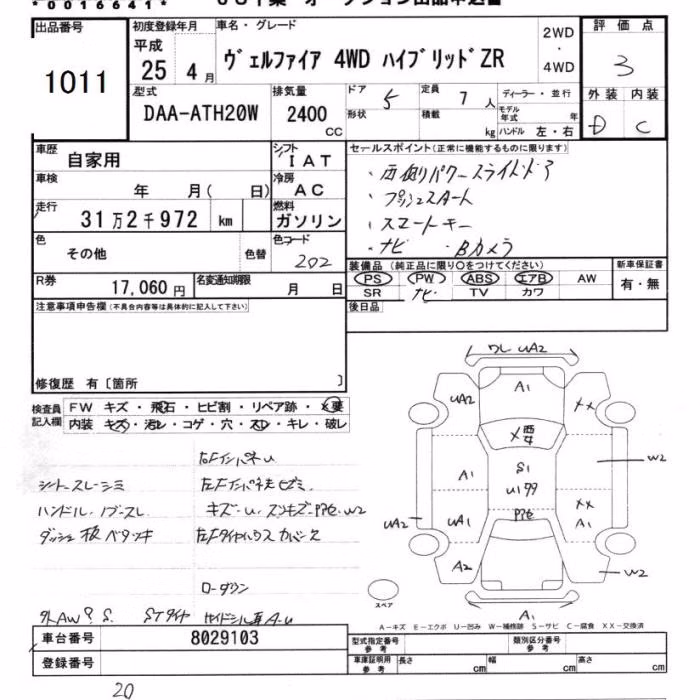 *0016641*
出品番号
1011
初度登録年月
平成
25 4月
車名・グレード
ヴェルファイア 4WD ハイブリッドZR
2WD
・
4WD
評価点
3
外装 内装
D C
型式
DAA-ATH20W
排気量
2400
cc
ドア
5
形状
定員
7人
積載
kg
ディーラー・並行
モデル年式 年
ハンドル 左・右
車歴
自家用
シフト
IAT
車検
年 月( 日)
冷房
AC
走行
31万2千972 km
燃料
ガソリン
色
その他
色替
色コード
202
R券
17,060円
名変通知期限
月 日
セールスポイント(正常に機能するものに限ります)
・両側パワースライドドア
・プッシュスタート
・スマートキー
・ナビ ・Bカメラ
装備品(純正品に限り○をつけてください)
PS PW ABS エアB AW
SR ナビ TV カワ
新車保証書
有・無
後日品
注意事項申告欄(不具合内容等は具体的に記入して下さい)
修復歴 有〔箇所 〕
検査員
記入欄
FW キズ・飛石・ヒビ割・リペア跡・×要
内装 キズ・汚レ・コゲ・穴・スレ・キレ・破レ
シートスレ・シミ
ハンドル
ダッシュ板ベタツキ
ローダウン
ワレ UA2
A1
UA2
××
×要
S1
A1
W2
UA1
××
A1
UA2
A2
W2
A1
スペア
A−キズ E−エクボ U−凹み W−補修跡 S−サビ C−腐食 XX−交換済
車台番号
8029103
登録番号
型式指定番号
参考
類別区分番号
参考
車庫証明用
参考
長さ cm
幅 cm
高さ cm
20